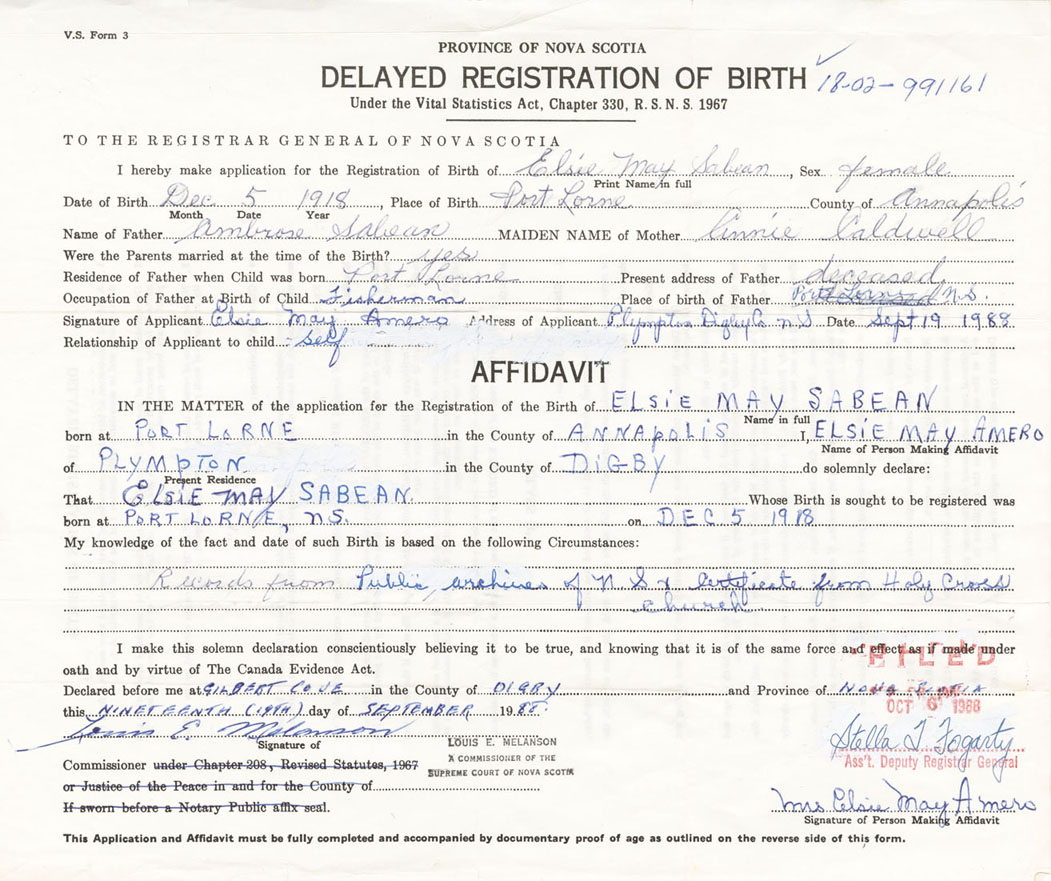 V.S. Form 3
PROVINCE OF NOVA SCOTIA
DELAYED REGISTRATION OF BIRTH 18-02-991161
Under the Vital Statistics Act, Chapter 330, R.S.N.S. 1967
TO THE REGISTRAR GENERAL OF NOVA SCOTIA
I hereby make application for the Registration of Birth of Elsie May Sabean, Sex female
Print Name in full
Date of Birth Dec 5 1918, Place of Birth Port Lorne County of Annapolis
Month Date Year
Name of Father Ambrose Sabean MAIDEN NAME of Mother Annie Caldwell
Were the Parents married at the time of the Birth? yes
Residence of Father when Child was born Port Lorne Present address of Father deceased
Occupation of Father at Birth of Child Fisherman Place of birth of Father Port N.S.
Signature of Applicant Elsie May Amero Address of Applicant Plympton Digby Co N.S Date Sept 19 1988
Relationship of Applicant to child: self
AFFIDAVIT
IN THE MATTER of the application for the Registration of the Birth of ELSIE MAY SABEAN
Name in full
born at PORT LORNE in the County of ANNAPOLIS I, ELSIE MAY AMERO
Name of Person Making Affidavit
of PLYMPTON in the County of DIGBY do solemnly declare:
Present Residence
That ELSIE MAY SABEAN Whose Birth is sought to be registered was
born at PORT LORNE, NS. on DEC 5 1918
My knowledge of the fact and date of such Birth is based on the following Circumstances:
Records from Public archives of N S & Certificate from Holy Cross
church
I make this solemn declaration conscientiously believing it to be true, and knowing that it is of the same force and effect as if made under
oath and by virtue of The Canada Evidence Act.
FILED
Declared before me at GILBERT COVE in the County of DIGBY and Province of NOVA SCOTIA
this NINETEENTH (19TH) day of SEPTEMBER 1988
OCT 6 1988
Louis E. Melanson
Signature of
LOUIS E. MELANSON
A COMMISSIONER OF THE
SUPREME COURT OF NOVA SCOTIA
Stella T Fogarty
Ass't. Deputy Registrar General
Commissioner under Chapter 208, Revised Statutes, 1967
or Justice of the Peace in and for the County of
If sworn before a Notary Public affix seal.
Mrs Elsie May Amero
Signature of Person Making Affidavit
This Application and Affidavit must be fully completed and accompanied by documentary proof of age as outlined on the reverse side of this form.